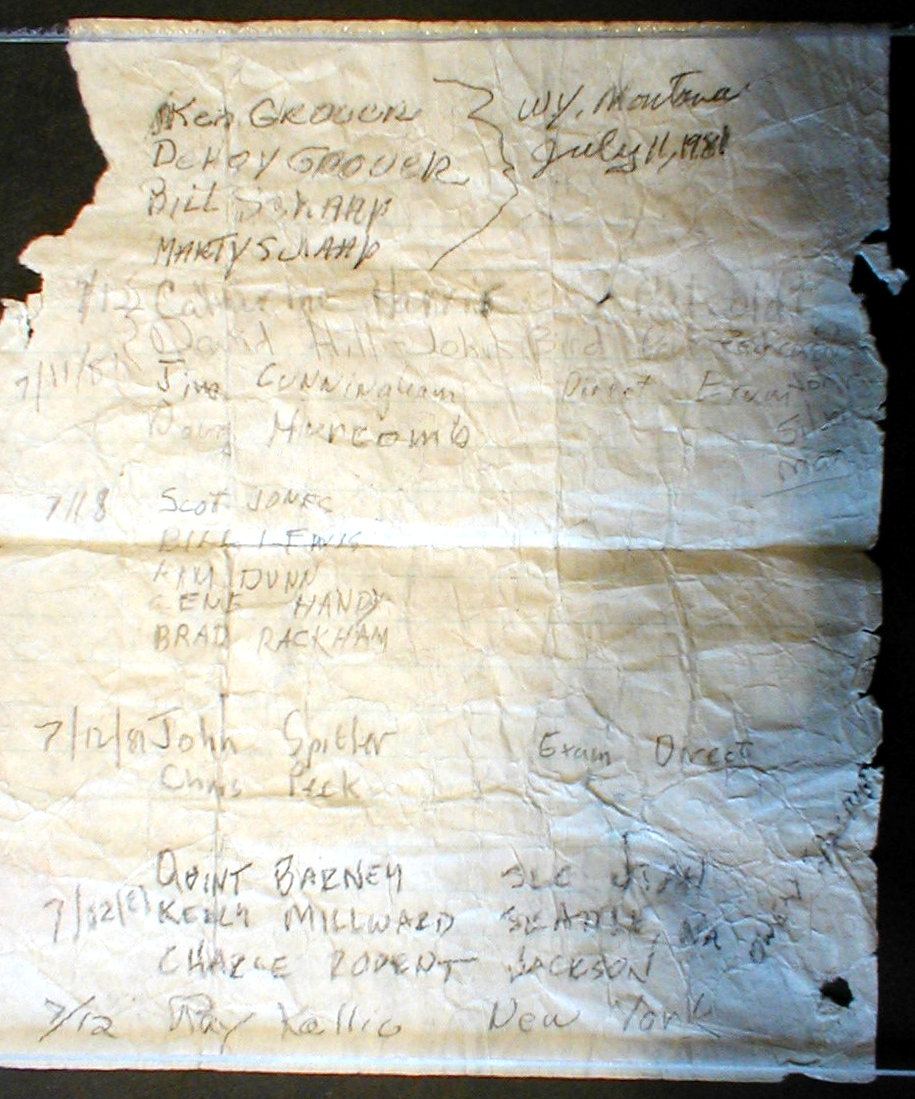 Ken Groover } Wy, Montana
DeHoy Groover July 11, 1981
Bill
Marty
7/12 Catherine Harris
David Hill - John Bird
7/11/81 Jim Cunningham Direct Exum
Doug
7/18 Scot Jones
Bill Lewis
Kim Dunn
Gene Handy
Brad Rackham
7/12/81 John Spitler Exum Direct
Chris Peck
Quint Barney SLC Utah
7/12/81 Kelly Millward Seattle, WA
Charle Rodent Jackson
7/12 Ray Kallio New York